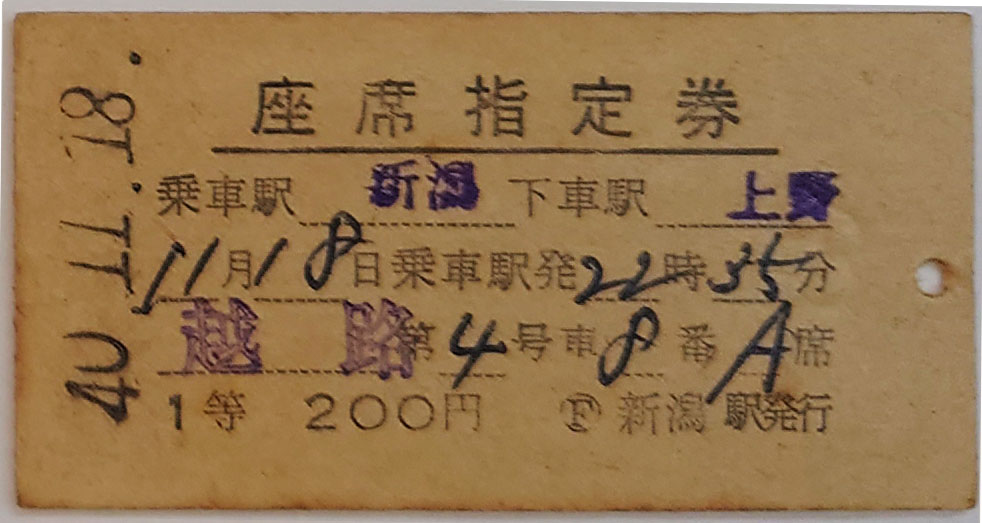 座席指定券
乗車駅 新潟 下車駅 上野
11月18日乗車駅発22時35分
越路 第4号車8番A席
1等 200円 Ⓕ新潟駅発行
40.11.18.